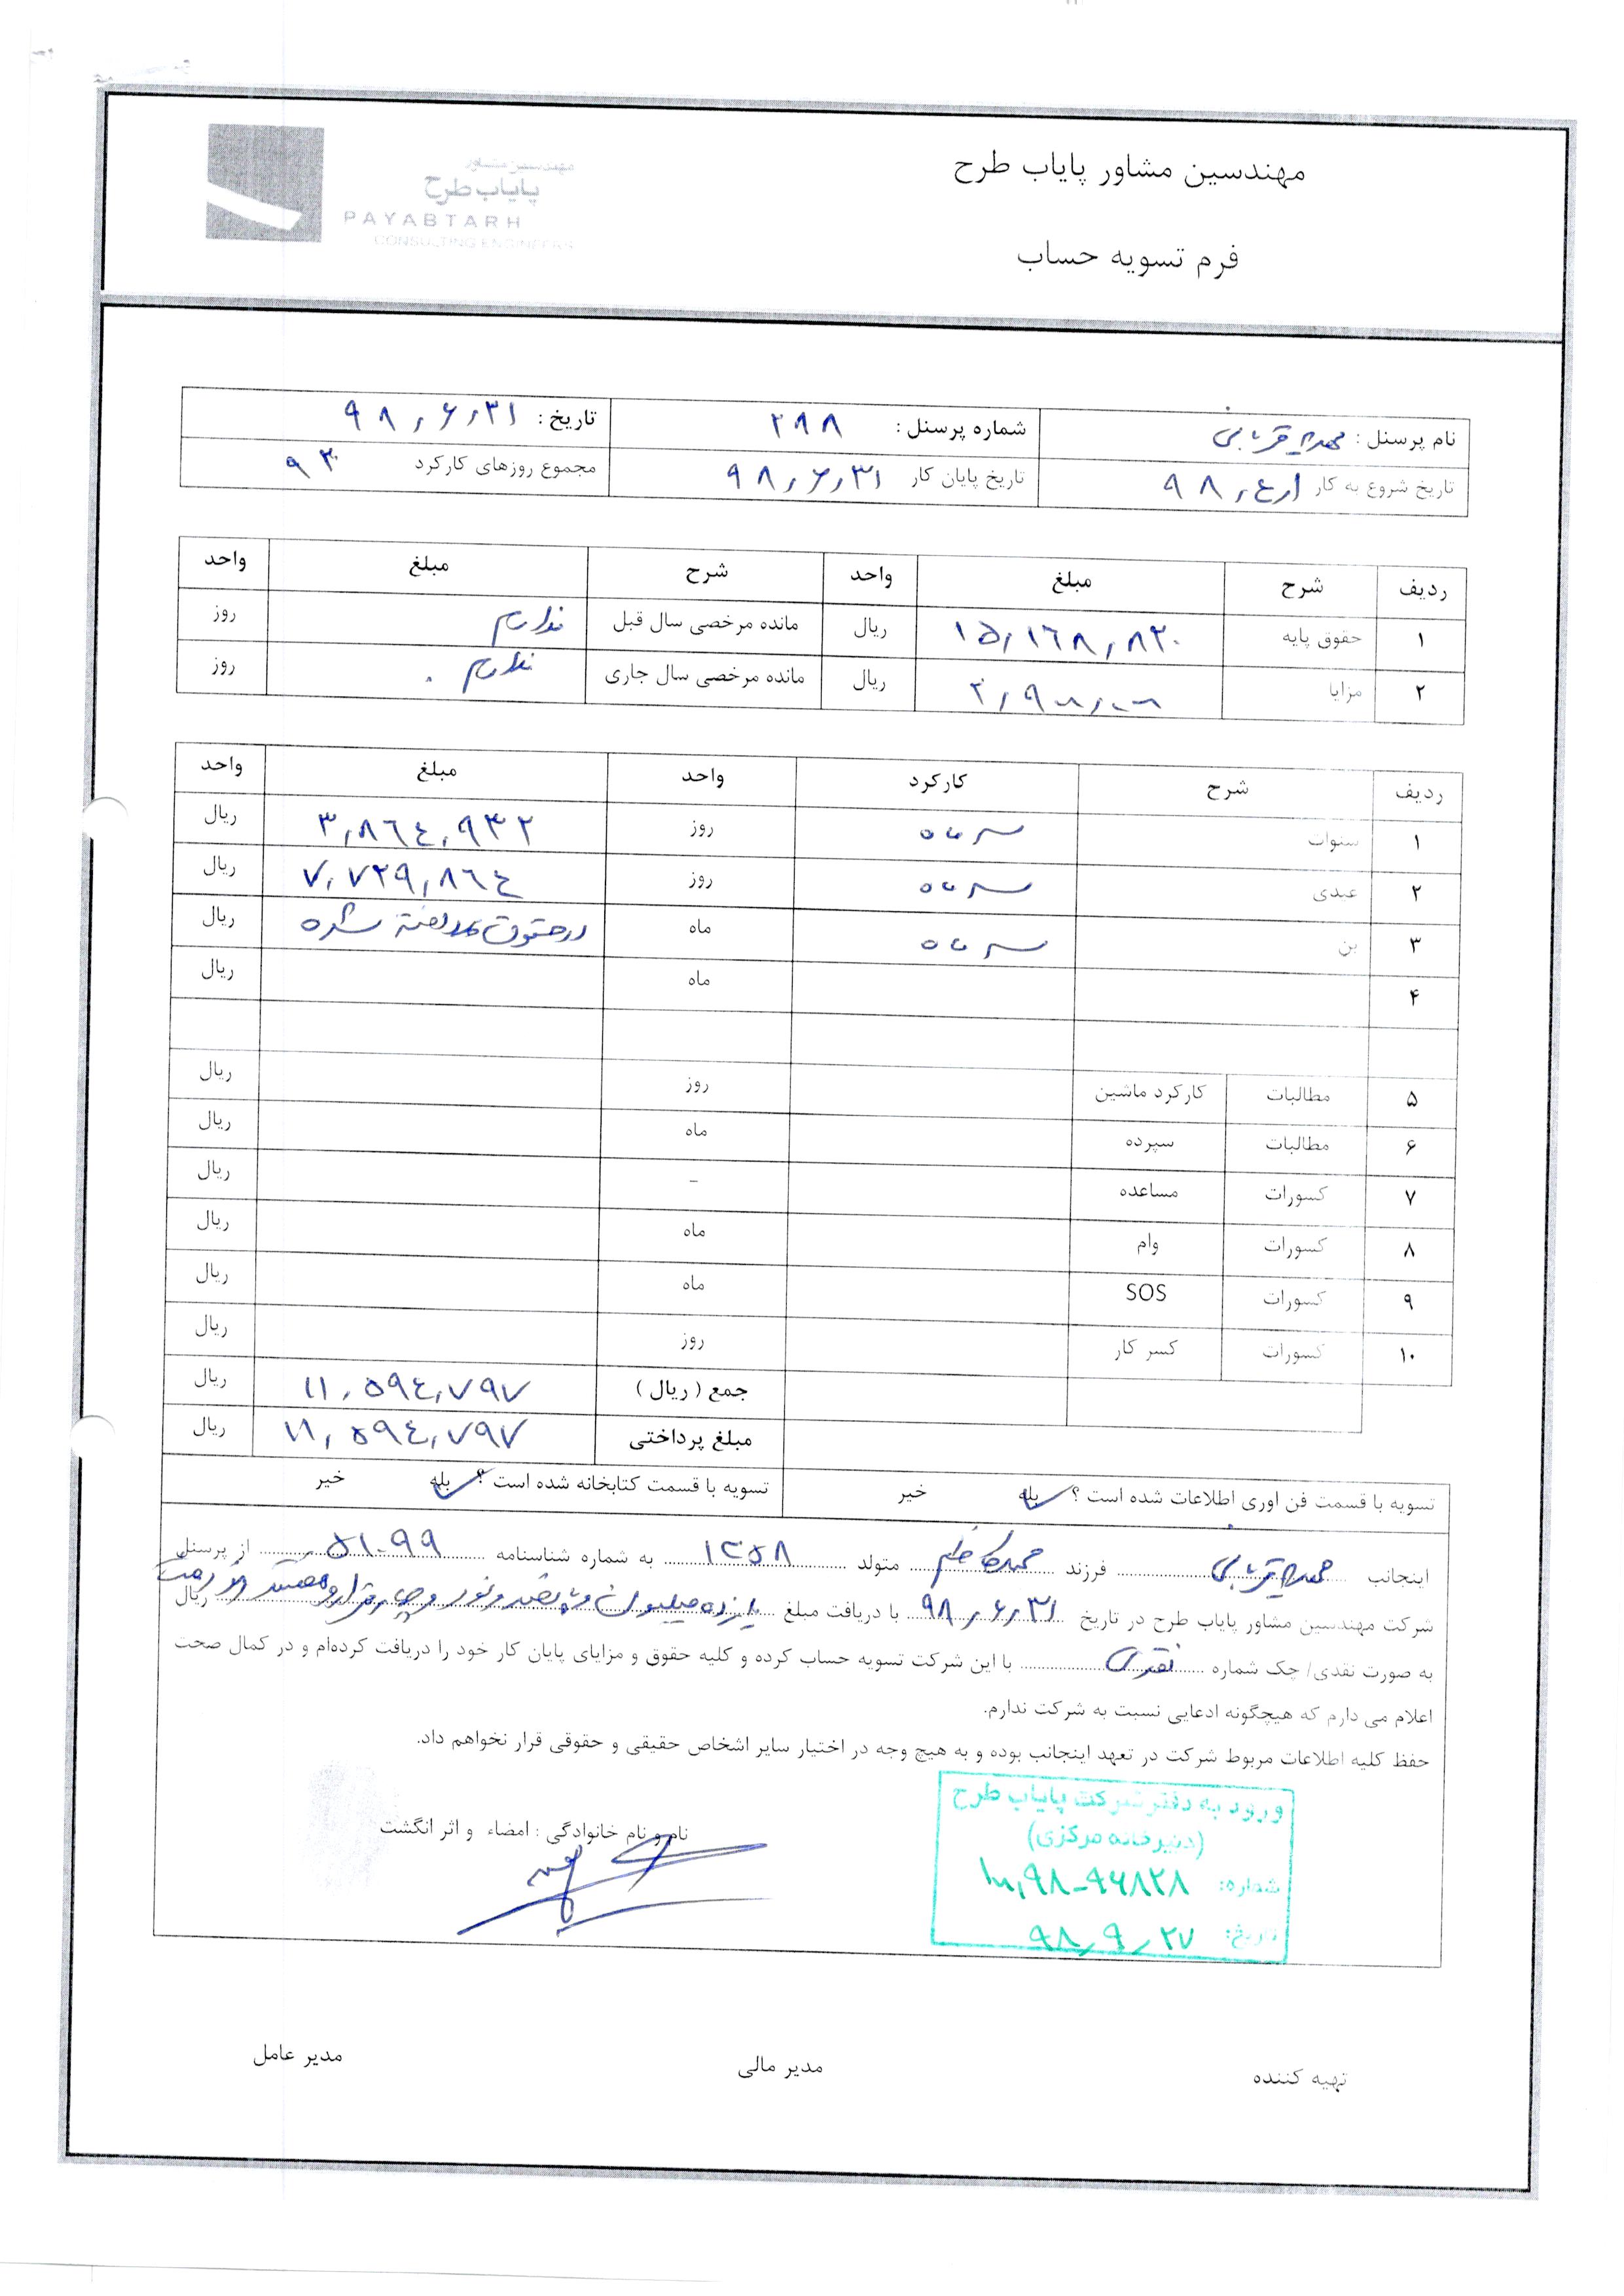 مهندسین مشاور پایاب طرح
مهندسین مشاور
پایاب طرح
PAYABTARH
CONSULTING ENGINEERS
فرم تسویه حساب
نام پرسنل : قربانی شماره پرسنل : ۲۹۸ تاریخ : ۹۸,۶,۳۱
تاریخ شروع به کار ۹۸,۴,۱ تاریخ پایان کار ۹۸,۶,۳۱ مجموع روزهای کارکرد ۹۳
ردیف شرح مبلغ واحد شرح مبلغ واحد
۱ حقوق پایه ۱۵,۱۶۸,۸۳۰ ریال مانده مرخصی سال قبل ندارم روز
۲ مزایا ریال مانده مرخصی سال جاری ندارم . روز
ردیف شرح کارکرد واحد مبلغ واحد
۱ سنوات سه ماه روز ۳,۸۶۴,۹۳۲ ریال
۲ عیدی سه ماه روز ۷,۷۲۹,۸۶۴ ریال
۳ بن سه ماه ماه در حقوق شده ریال
۴ ماه ریال
۵ مطالبات کارکرد ماشین روز ریال
۶ مطالبات سپرده ماه ریال
۷ کسورات مساعده - ریال
۸ کسورات وام ماه ریال
۹ کسورات SOS ماه ریال
۱۰ کسورات کسر کار روز ریال
جمع ( ریال ) ۱۱,۵۹۴,۷۹۷ ریال
مبلغ پرداختی ۱۱,۵۹۴,۷۹۷ ریال
تسویه با قسمت فن اوری اطلاعات شده است ؟ بله خیر تسویه با قسمت کتابخانه شده است ؟ بله خیر
اینجانب قربانی فرزند محمدکاظم متولد ۱۳۵۸ به شماره شناسنامه ۵۱۰۹۹ از پرسنل
شرکت مهندسین مشاور پایاب طرح در تاریخ ۹۸,۶,۳۱ با دریافت مبلغ یازده میلیون و پانصد و نود و چهار هزار و هفتصد و نود و هفت ریال
به صورت نقدی/ چک شماره نقدی با این شرکت تسویه حساب کرده و کلیه حقوق و مزایای پایان کار خود را دریافت کرده‌ام و در کمال صحت
اعلام می دارم که هیچگونه ادعایی نسبت به شرکت ندارم.
حفظ کلیه اطلاعات مربوط شرکت در تعهد اینجانب بوده و به هیچ وجه در اختیار سایر اشخاص حقیقی و حقوقی قرار نخواهم داد.
نام و نام خانوادگی : امضاء و اثر انگشت
ورود به دفتر شرکت پایاب طرح
(دبیرخانه مرکزی)
شماره: ۹۸-۹۶۸۲۸
تاریخ: ۹۸,۹,۲۷
تهیه کننده مدیر مالی مدیر عامل